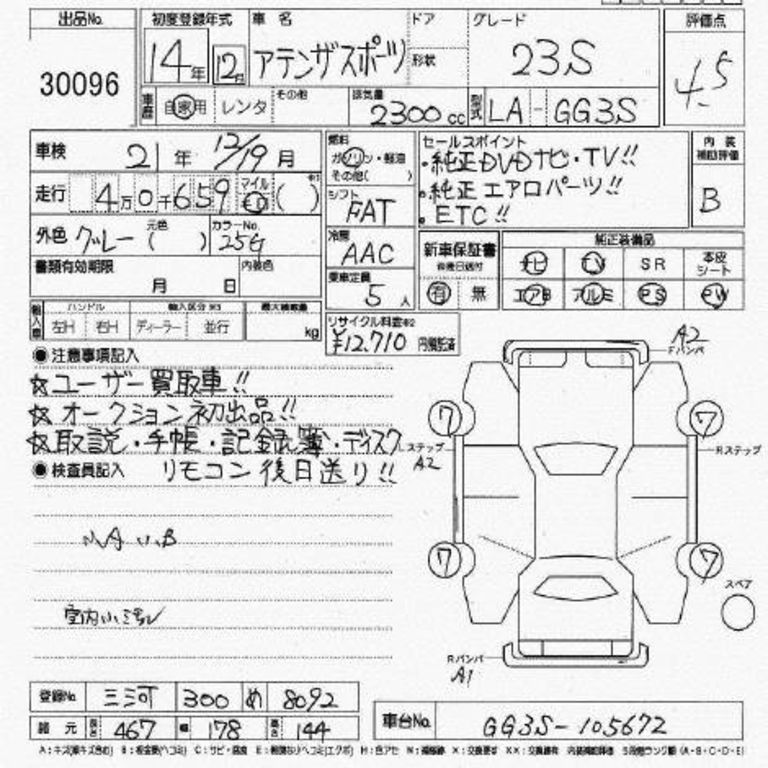 出品No. 30096
初度登録年式 14年 12月
車名 アテンザスポーツ
ドア 形状
グレード 23S
評価点 4.5
車歴 自家用 レンタ その他
排気量 2300cc
型式 LA-GG3S
車検 21年 12/19月
走行 4万0千659 マイル ( )
外色 グレー 元色( ) カラーNo. 25G
書類有効期限 月 日 内装色
燃料 ガソリン・軽油 その他( )
シフト FAT
冷房 AAC
乗車定員 5人
セールスポイント
・純正DVDナビ・TV!!
・純正エアロパーツ!!
・ETC!!
内装補助評価 B
新車保証書 有 無
純正装備品
ナビ TV SR 本皮シート
エアB アルミ PS PW
輸入車 ハンドル 左H 右H 輸入区分 ディーラー 並行 最大積載量 kg
リサイクル料金 ¥12,710
●注意事項記入
☆ユーザー買取車!!
☆オークション初出品!!
☆取説・手帳・記録簿・ディスク
リモコン後日送り!!
●検査員記入
小A 小B
室内小汚レ
A2 Fバンパ
7 7
ステップ A2
Rステップ
7 7
スペア
Rバンパ A1
登録No. 三河 300 め 8092
諸元 長さ 467 幅 178 高さ 144
車台No. GG3S-105672